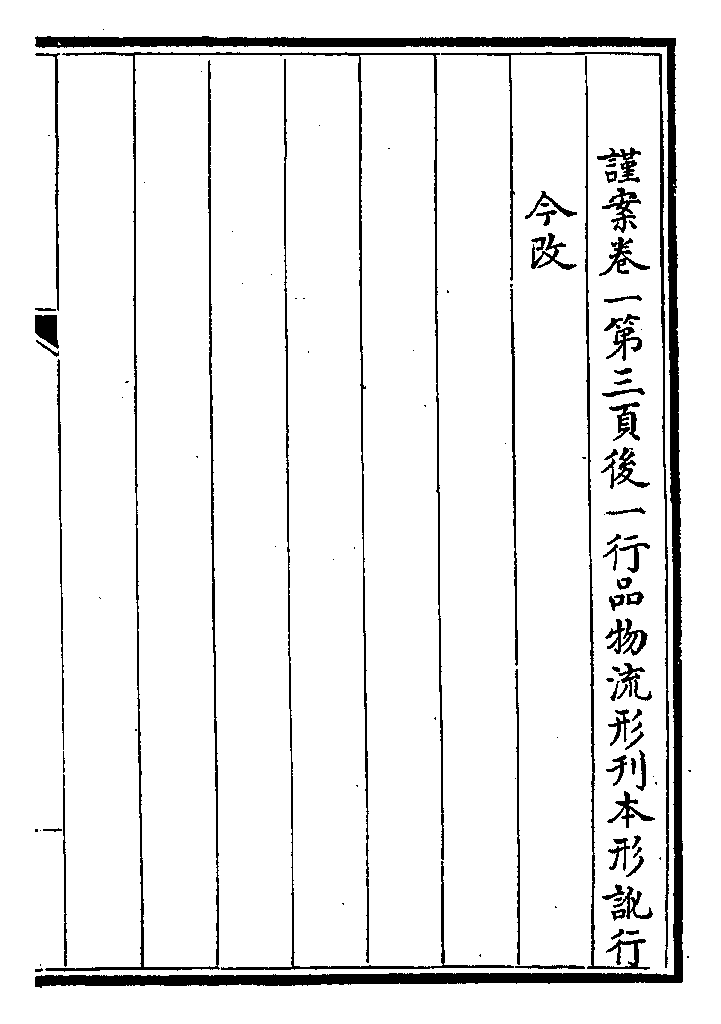 謹案卷一第三頁後一行品物流形刋本形訛行
今改